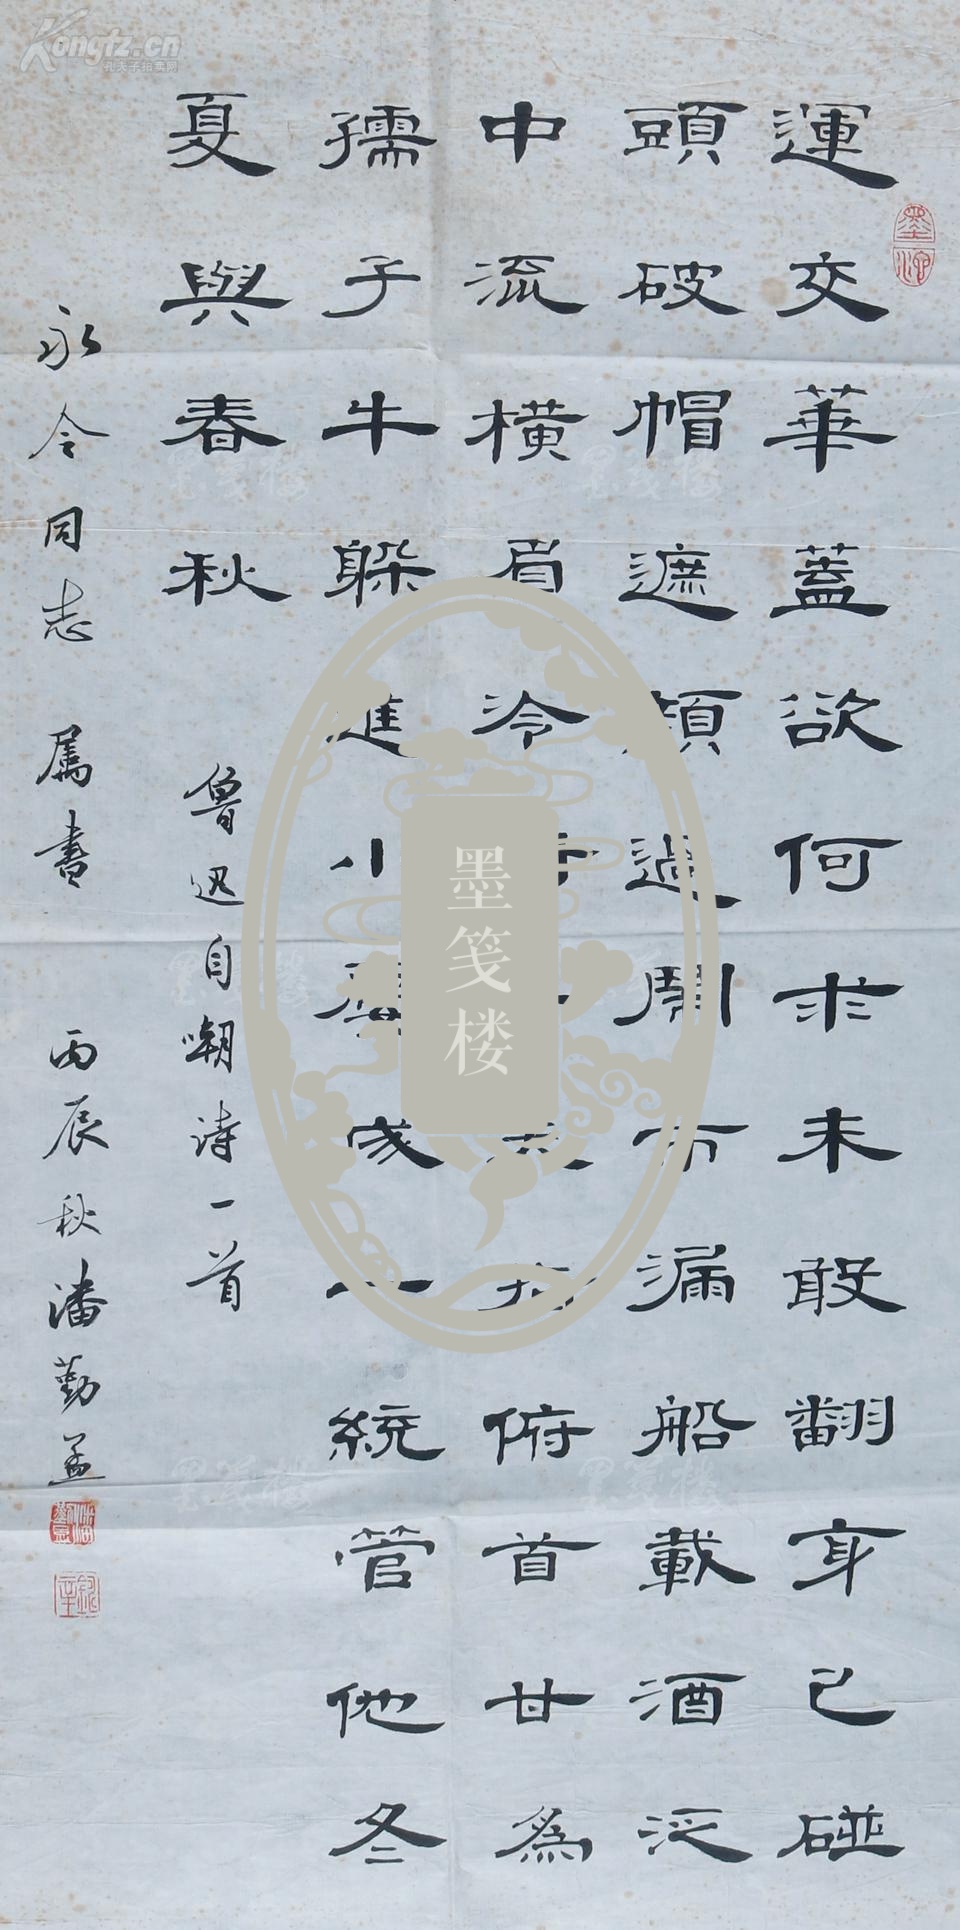 運交華蓋欲何求未敢翻身已碰
頭破帽遮顏過鬧市漏船載酒泛
中流橫眉冷夫指俯首甘為
孺子牛躲進小成一統管他冬
夏與春秋
魯迅自嘲詩一首
永令同志 属書 丙辰秋潘勤孟
墨笺楼
Kongtz.cn
孔夫子拍卖网